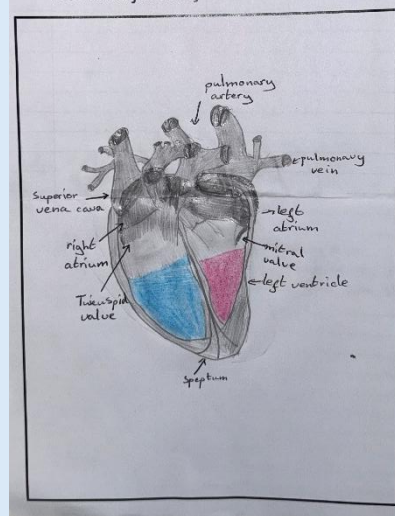 pulmonary
artery
pulmonary
vein
Superior
vena cava
left
atrium
right
atrium
mitral
valve
left ventricle
valve
Speptum